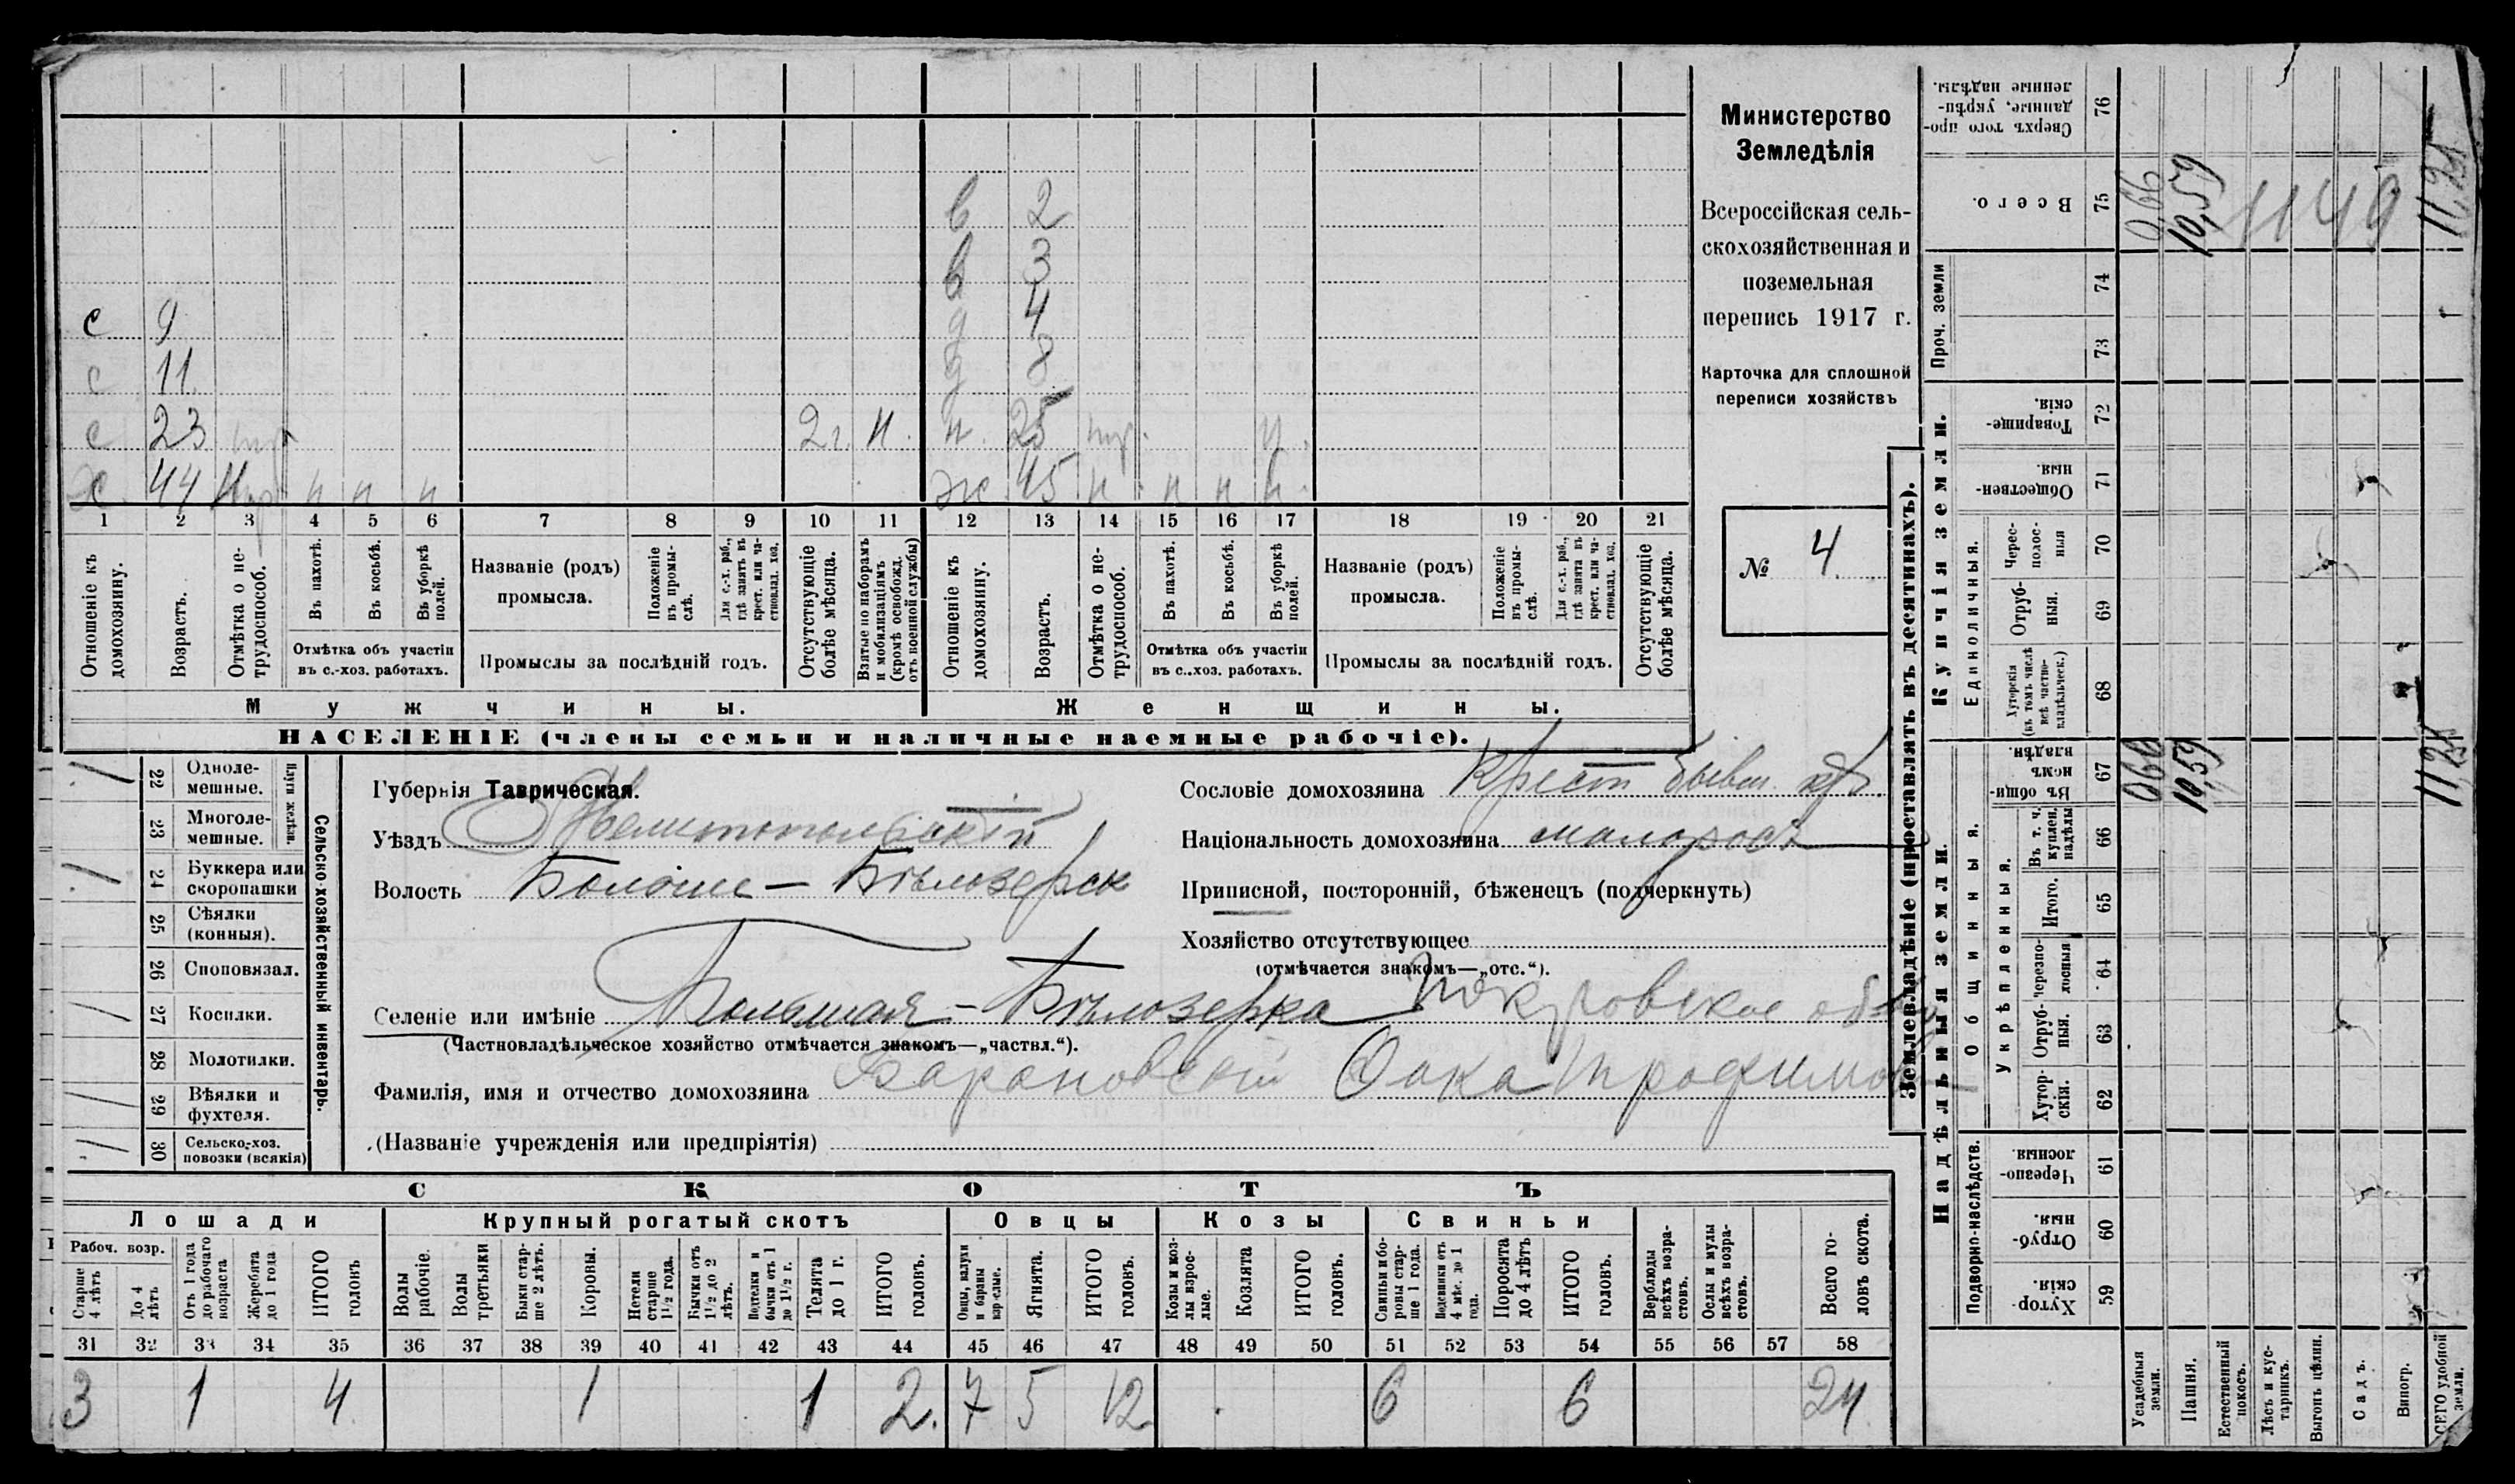 Министерство
Земледѣлія
Всероссійская сель-
скохозяйственная и
поземельная
перепись 1917 г.
Карточка для сплошной
переписи хозяйствъ
№ 4
в 2
в 3
с 9 д 4
с 11 д 8
с 23 2 г. н. н. 25 н.
х 44 н н н ж. 45 н н н н
1 2 3 4 5 6 7 8 9 10 11 12 13 14 15 16 17 18 19 20 21
Отношеніе къ домохозяину.
Возрастъ.
Отмѣтка о не-трудоспособ.
Въ пахотѣ.
Въ косьбѣ.
Въ уборкѣ полей.
Отмѣтка объ участіи
въ с.-хоз. работахъ.
Названіе (родъ)
промысла.
Положеніе въ промы-слѣ.
Для с.-х. раб., гдѣ занятъ въ крест. или ча-стновлад. хоз.
Промыслы за послѣдній годъ.
Отсутствующіе болѣе мѣсяца.
Взятые по наборамъ и мобилизаціямъ (кромѣ освобожд. отъ военной службы)
Отношеніе къ домохозяину.
Возрастъ.
Отмѣтка о не-трудоспособ.
Въ пахотѣ.
Въ косьбѣ.
Въ уборкѣ полей.
Отмѣтка объ участіи
въ с..хоз. работахъ.
Названіе (родъ)
промысла.
Положеніе въ промы-слѣ.
Для с.-х. раб., гдѣ занята въ крест. или ча-стновлад. хоз.
Промыслы за послѣдній годъ.
Отсутствующіе болѣе мѣсяца.
Мужчины. Женщины.
НАСЕЛЕНІЕ (члены семьи и наличные наемные рабочіе).
22 Одноле-мешные.
23 Многоле-мешные.
Плуги желѣзн.
24 Буккера или скоропашки
25 Сѣялки (конныя).
26 Сноповязал.
27 Косилки.
28 Молотилки.
29 Вѣялки и фухтеля.
30 Сельско-хоз. повозки (всякія)
Сельско-хозяйственный инвентарь.
Губернія Таврическая.
Уѣздъ Мелитопольскій
Волость Больше-Бѣлозерск
Сословіе домохозяина Крест бывш.
Національность домохозяина малоросъ
Приписной, посторонній, бѣженецъ (подчеркнуть)
Хозяйство отсутствующее
(отмѣчается знакомъ—„отс.“).
Селеніе или имѣніе Большая-Бѣлозерка Покровское
(Частновладѣльческое хозяйство отмѣчается знакомъ—„частвл.“).
Фамилія, имя и отчество домохозяина Барановскій Фока Трофимов
(Названіе учрежденія или предпріятія)
СКОТЪ
Лошади Крупный рогатый скотъ Овцы Козы Свиньи
Рабоч. возр.
Старше 4 лѣтъ
До 4 лѣтъ
Отъ 1 года до рабочаго возраста
Жеребята до 1 года
ИТОГО головъ
Волы рабочіе.
Волы третьяки
Быки стар-ше 2 лѣтъ.
Коровы.
Нетели старше 1½ года.
Бычки отъ 1½ до 2 лѣтъ.
Подтелки и бычки отъ 1 до 1½ г.
Телята до 1 г.
ИТОГО головъ.
Овцы, валухи и бараны взрослые.
Ягнята.
ИТОГО головъ.
Козы и коз-лы взрос-лые.
Козлята
ИТОГО головъ.
Свиньи и бо-ровы стар-ше 1 года.
Подсвинки отъ 4 мѣс. до 1 года.
Поросята до 4 лѣтъ
ИТОГО головъ.
Верблюды всѣхъ возра-стовъ.
Ослы и мулы всѣхъ возра-стовъ.
Всего го-ловъ скота.
31 32 33 34 35 36 37 38 39 40 41 42 43 44 45 46 47 48 49 50 51 52 53 54 55 56 57 58
3 1 4 1 1 2. 7 5 12 6 6 24
Землевладѣніе (проставлять въ десятинахъ).
Сверхъ того про-данные, укрѣп-ленные надѣлы. 76
Всего. 75 0,66 10,59 1149
Проч. земли 74 73
Купчія земли.
Товарище-скія. 72
Обществен-ныя. 71
Единоличныя.
Черес-полос-ныя 70
Отруб-ныя. 69
Хуторскія (въ томъ числѣ всѣ частно-владѣльческ.) 68
Надѣльныя земли.
Общинныя.
Въ общи-номъ владѣн. 67 10,59
Укрѣпленныя.
Въ т. ч. куплен. надѣлы 66
Итого. 65
Черезпо-лосныя 64
Отруб-ныя. 63
Хутор-скія. 62
Подворно-наслѣдств.
Черезпо-лосныя. 61
Отруб-ныя. 60
Хутор-скія. 59
Усадебныя земли.
Пашня.
Естественный покосъ.
Лѣсъ и кус-тарникъ.
Выгонъ цѣлин.
Садъ.
Виногр.
ВСЕГО удобной земли.